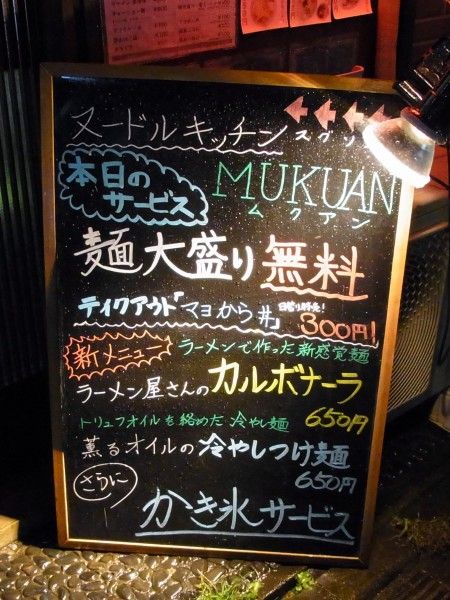 ヌードルキッチン
本日の
サービス
MUKUAN
ムクアン
麺大盛り無料
テイクアウト「マヨから丼」
300円!
新メニュー
ラーメンで作った新感覚麺
ラーメン屋さんのカルボナーラ
トリュフオイルを絡めた冷やし麺 650円
薫るオイルの冷やしつけ麺
650円
さらに
かき氷サービス